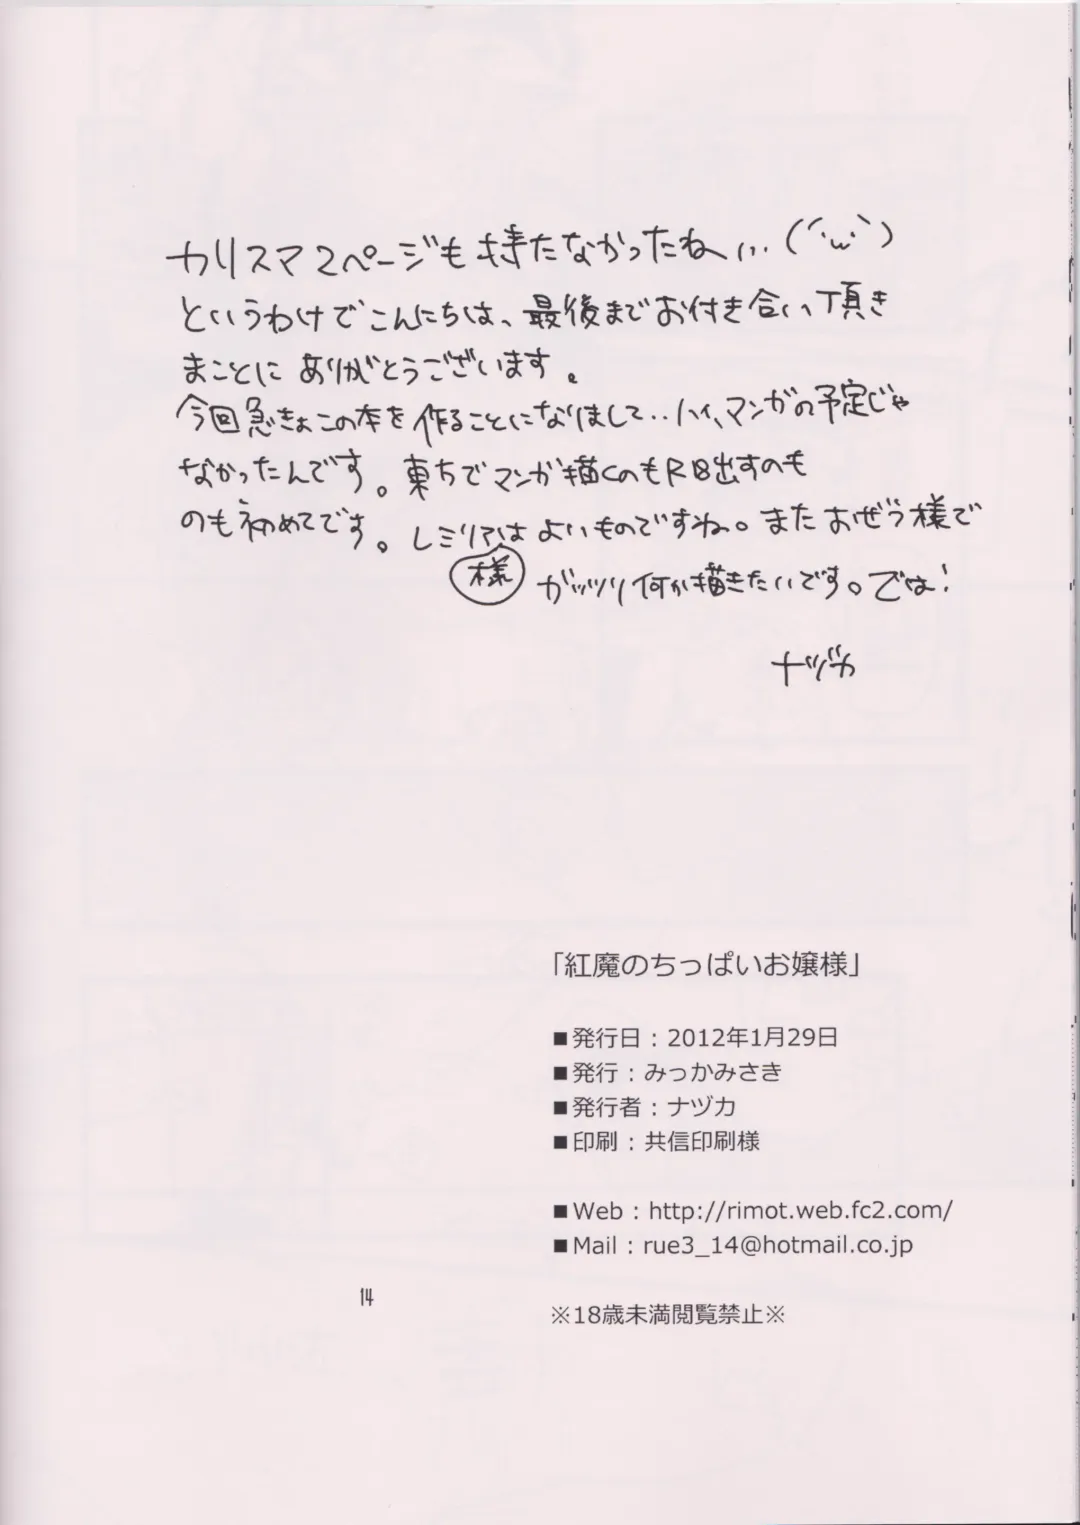 カリスマ2ページも持たなかったねぃ…(´・ω・`)
というわけでこんにちは、最後までお付き合い頂き
まことにありがとうございます。
今回急きょこの本を作ることになりまして‥ハイ、マンガの予定じゃ
なかったんです。東方でマンガ描くのもR18出すのも
のも初めてです。レミリアはよいものですね。またおぜう様で
様
ガッツリ何か描きたいです。では!
ナヅカ
「紅魔のちっぱいお嬢様」
■発行日：2012年1月29日
■発行：みっかみさき
■発行者：ナヅカ
■印刷：共信印刷様
■Web：http://rimot.web.fc2.com/
■Mail：rue3_14@hotmail.co.jp
14
※18歳未満閲覧禁止※